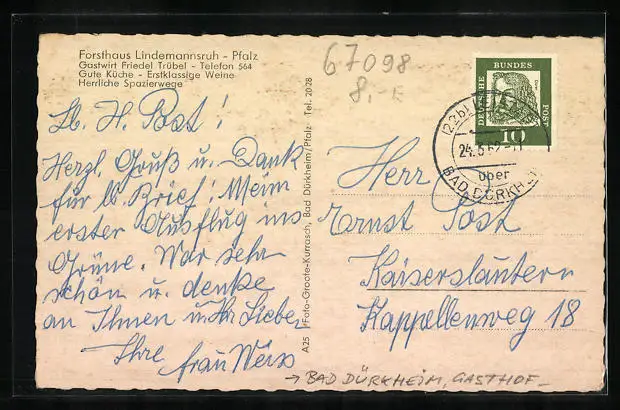 Forsthaus Lindemannsruh - Pfalz
Gastwirt Friedel Trübel - Telefon 564
Gute Küche - Erstklassige Weine
Herrliche Spazierwege
67098
8,-
Lb. H. Post!
Herzl. Gruß u. Dank
für lb Brief! Meim
erster Ausflug ins
Grüne. War sehr
schön u. denke
an Ihnen u. Ihr Lieben
Ihre
frau Weiss
A 25 Foto-Groote-Kurrasch, Bad Dürkheim/Pfalz Tel. 2028
DEUTSCHE BUNDES POST
10
(22b)
24.3.62
über
BAD DÜRKH
Herr
Ernst Post
Kaiserslautern
Kappellenweg 18
→ BAD DÜRKHEIM, GASTHOF